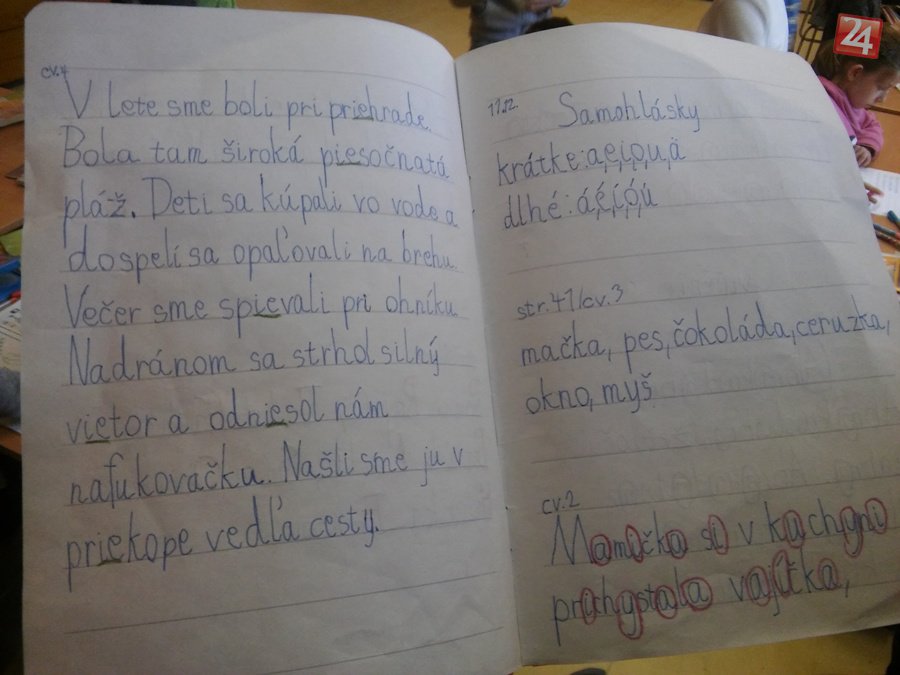 cv.4
V lete sme boli pri priehrade.
Bola tam široká piesočnatá
pláž. Deti sa kúpali vo vode a
dospelí sa opaľovali na brehu.
Večer sme spievali pri ohníku.
Nadránom sa strhol silný
vietor a odniesol nám
nafukovačku. Našli sme ju v
priekope vedľa cesty.
17.12.
Samohlásky
krátke: a, e, i, o, u, ä
dlhé: á, é, í, ó, ú
str. 41/cv. 3
mačka, pes, čokoláda, ceruzka,
okno, myš
cv. 2
Mamička si v kachyni
prichystala vajíčka,
24